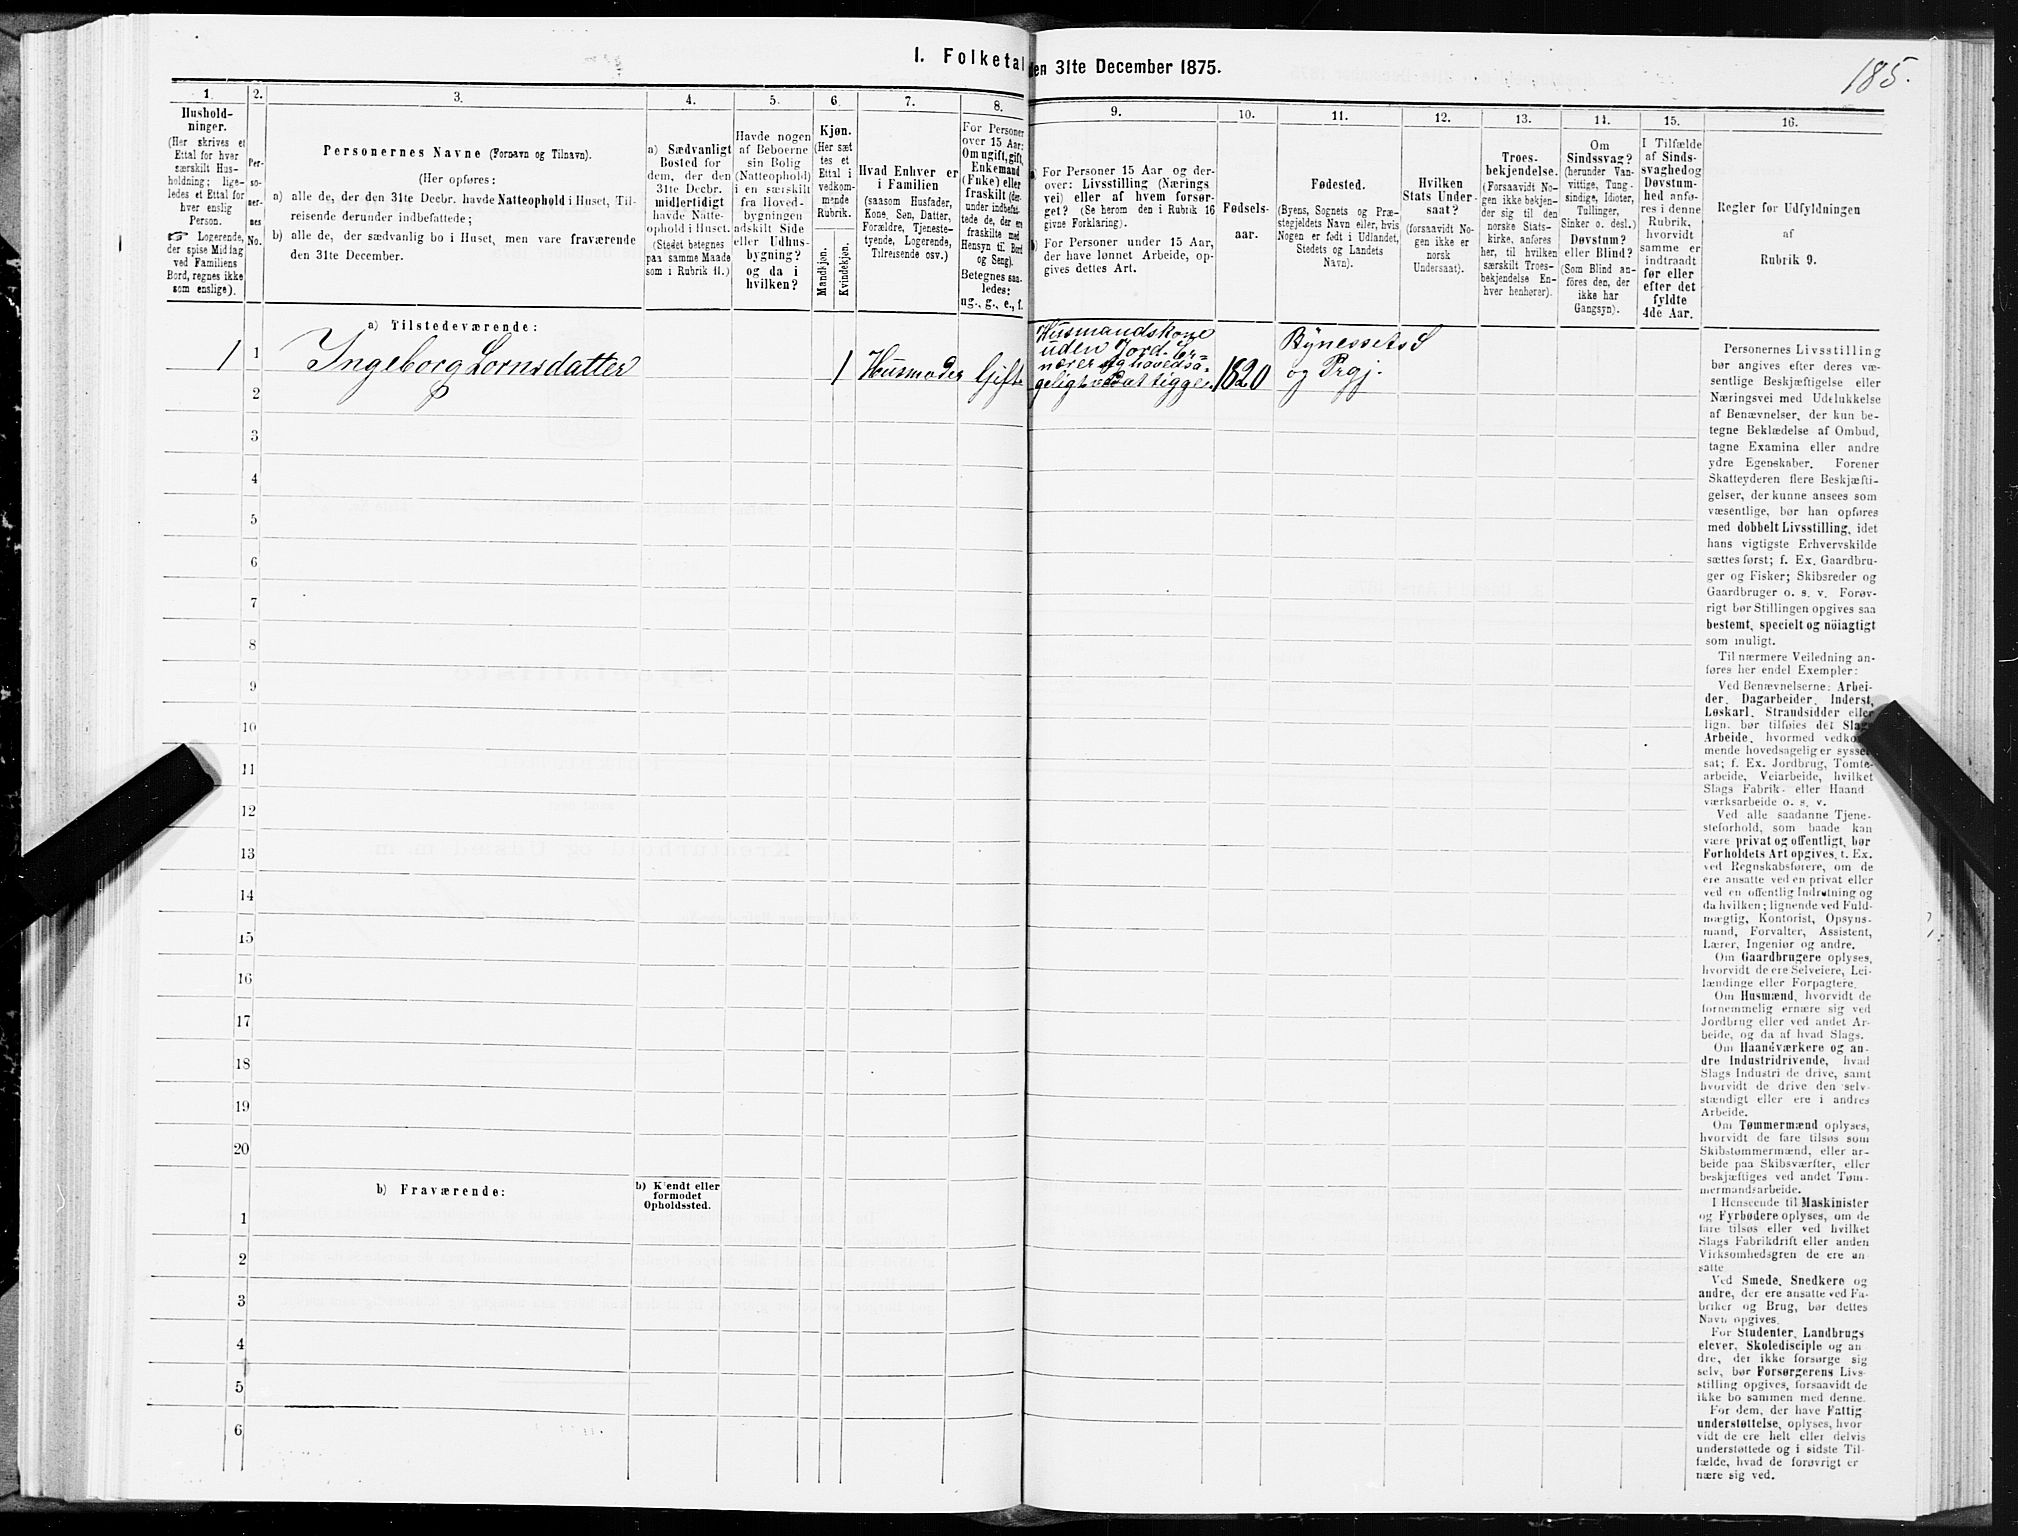 I. Folketal den 31te December 1875.
185.
1.
Hushold-
ninger.
(Her skrives et
Ettal for hver
særskilt Hus-
holdning; lige-
ledes et Ettal for
hver enslig
Person.
☞ Logerende,
der spise Middag
ved Familiens
Bord, regnes ikke
som enslige).
2.
Per-
so-
ner-
nes
No.
3.
Personernes Navne (Fornavn og Tilnavn).
(Her opføres:
a) alle de, der den 31te Decbr. havde Natteophold i Huset, Til-
reisende derunder indbefattede;
b) alle de, der sædvanlig bo i Huset, men vare fraværende
den 31te December.
4.
a) Sædvanligt
Bosted for
dem, der den
31te Decbr.
midlertidigt
havde Natte-
ophold i Huset.
(Stedet betegnes
paa samme Maade
som i Rubrik 11.)
5.
Havde nogen
af Beboerne
sin Bolig
(Natteophold)
i en særskilt
fra Hoved-
bygningen
adskilt Side
eller Udhus-
bygning?
og da i
hvilken?
6.
Kjøn.
(Her sæt
tes et
Ettal i
vedkom-
mende
Rubrik.
Mandkjøn.
Kvindekjøn.
7.
Hvad Enhver er
i Familien
(saasom Husfader,
Kone, Søn, Datter,
Forældre, Tjeneste-
tyende, Logerende,
Tilreisende osv.)
8.
For Personer
over 15 Aar:
Om ugift, gift,
Enkemand
(Enke) eller
fraskilt (der-
under indbefat-
tede de, der ere
fraskilte med
Hensyn til Bord
og Seng).
Betegnes saa-
ledes:
ug., g., e., f.
9.
a) For Personer 15 Aar og der-
over: Livsstilling (Nærings
vei) eller af hvem forsør-
get? (Se herom den i Rubrik 16
givne Forklaring).
b) For Personer under 15 Aar,
der have lønnet Arbeide, op-
gives dettes Art.
10.
Fødsels-
aar.
11.
Fødested.
(Byens, Sognets og Præ-
stegjeldets Navn eller, hvis
Nogen er født i Udlandet,
Stedets og Landets
Navn).
12.
Hvilken
Stats Under-
saat?
(forsaavidt No-
gen ikke er
norsk
Undersaat).
13.
Troes-
bekjendelse.
(Forsaavidt No-
gen ikke bekjen-
der sig til den
norske Stats-
kirke, anføres
her, til hvilken
særskilt Troes-
bekjendelse En-
hver henhører).
14.
Om
Sindssvag?
(herunder Van-
vittige, Tung-
sindige, Idioter,
Tullinger,
Sinker o. desl.)
Døvstum?
eller Blind?
(Som Blind an-
føres den, der
ikke har
Gangsyn).
15.
I Tilfælde
af Sinds-
svaghed og
Døvstum-
hed anfø-
res i denne
Rubrik,
hvorvidt
samme er
indtraadt
før eller
efter det
fyldte
4de Aar.
16.
Regler før Udfyldningen
af
Rubrik 9.
a) Tilstedeværende:
1 1 Ingeborg Lornsdatter 1 Husmoder Gift Husmandskone
uden Jord. Er-
nærer sig hovedsa-
gelig ved at tigge. 1820 Bynessets S
og Prgj.
2
3
4
5
6
7
8
9
10
11
12
13
14
15
16
17
18
19
20
b) Fraværende:
b) Kjendt eller
formodet
Opholdssted.
1
2
3
4
5
6
Personernes Livsstilling
bør angives efter deres væ-
sentlige Beskjæftigelse eller
Næringsvei med Udelukkelse
af Benævnelser, der kun be-
tegne Beklædelse af Ombud,
tagne Examina eller andre
ydre Egenskaber. Forener
Skatteyderen flere Beskjæfti-
gelser, der kunne ansees som
væsentlige, bør han opføres
med dobbelt Livsstilling, idet
hans vigtigste Erhvervskilde
sættes først; f. Ex. Gaardbru-
ger og Fisker; Skibsreder og
Gaardbruger o. s. v. Forøv-
rigt bør Stillingen opgives saa
bestemt, specielt og nöiagtigt
som muligt.
Til nærmere Veiledning an-
føres her endel Exempler:
Ved Benævnelserne: Arbei-
der, Dagarbeider, Inderst,
Løskarl, Strandsidder eller
lign. bør tilføies det Slags
Arbeide, hvormed vedkom-
mende hovedsagelig er syssel-
sat; f. Ex. Jordbrug, Tomte-
arbeide, Veiarbeide, hvilket
Slags Fabrik- eller Haand
værksarbeide o. s. v.
Ved alle saadanne Tjene-
steforhold, som baade kan
være privat og offentligt, bør
Forholdets Art opgives, t. Ex.
ved Regnskabsførere, om de
ere ansatte ved en privat eller
ved en offentlig Indretning og
da hvilken; lignende ved Fuld-
mægtig, Kontorist, Opsyns-
mand, Forvalter, Assistent,
Lærer, Ingeniør og andre.
Om Gaardbrugere oplyses,
hvorvidt de ere Selveiere, Lei-
lændinge eller Forpagtere.
Om Husmænd, hvorvidt de
fornemmelig ernære sig ved
Jordbrug eller ved andet Ar-
beide, og da af hvad Slags.
Om Haandværkere og an-
dre Industridrivende, hvad
Slags Industri de drive, samt
hvorvidt de drive den selv-
stændigt eller ere i andres
Arbeide.
Om Tømmermænd oplyses,
hvorvidt de fare tilsøs som
Skibstømmermænd, eller ar-
beide paa Skibsværfter, eller
beskjæftiges ved andet Tøm-
mermandsarbeide.
I Henseende til Maskinister
og Fyrbødere oplyses, om de
fare tilsøs eller ved hvilket
Slags Fabrikdrift eller anden
Virksomhedsgren de ere an-
satte
Ved Smede, Snedkere og
andre, der ere ansatte ved Fa-
briker og Brug, bør dettes
Navn opgives.
For Studenter, Landbrugs
elever, Skoledisciple og an
dre, der ikke forsørge sig
selv, bør Forsørgerens Livs-
stilling opgives, forsaavidt de
ikke bo sammen med denne.
For dem, der have Fattig
understøttelse, oplyses, hvor
vidt de ere helt eller delvis
understøttede og i sidste Til-
fælde, hvad de forøvrigt er
nære sig ved.